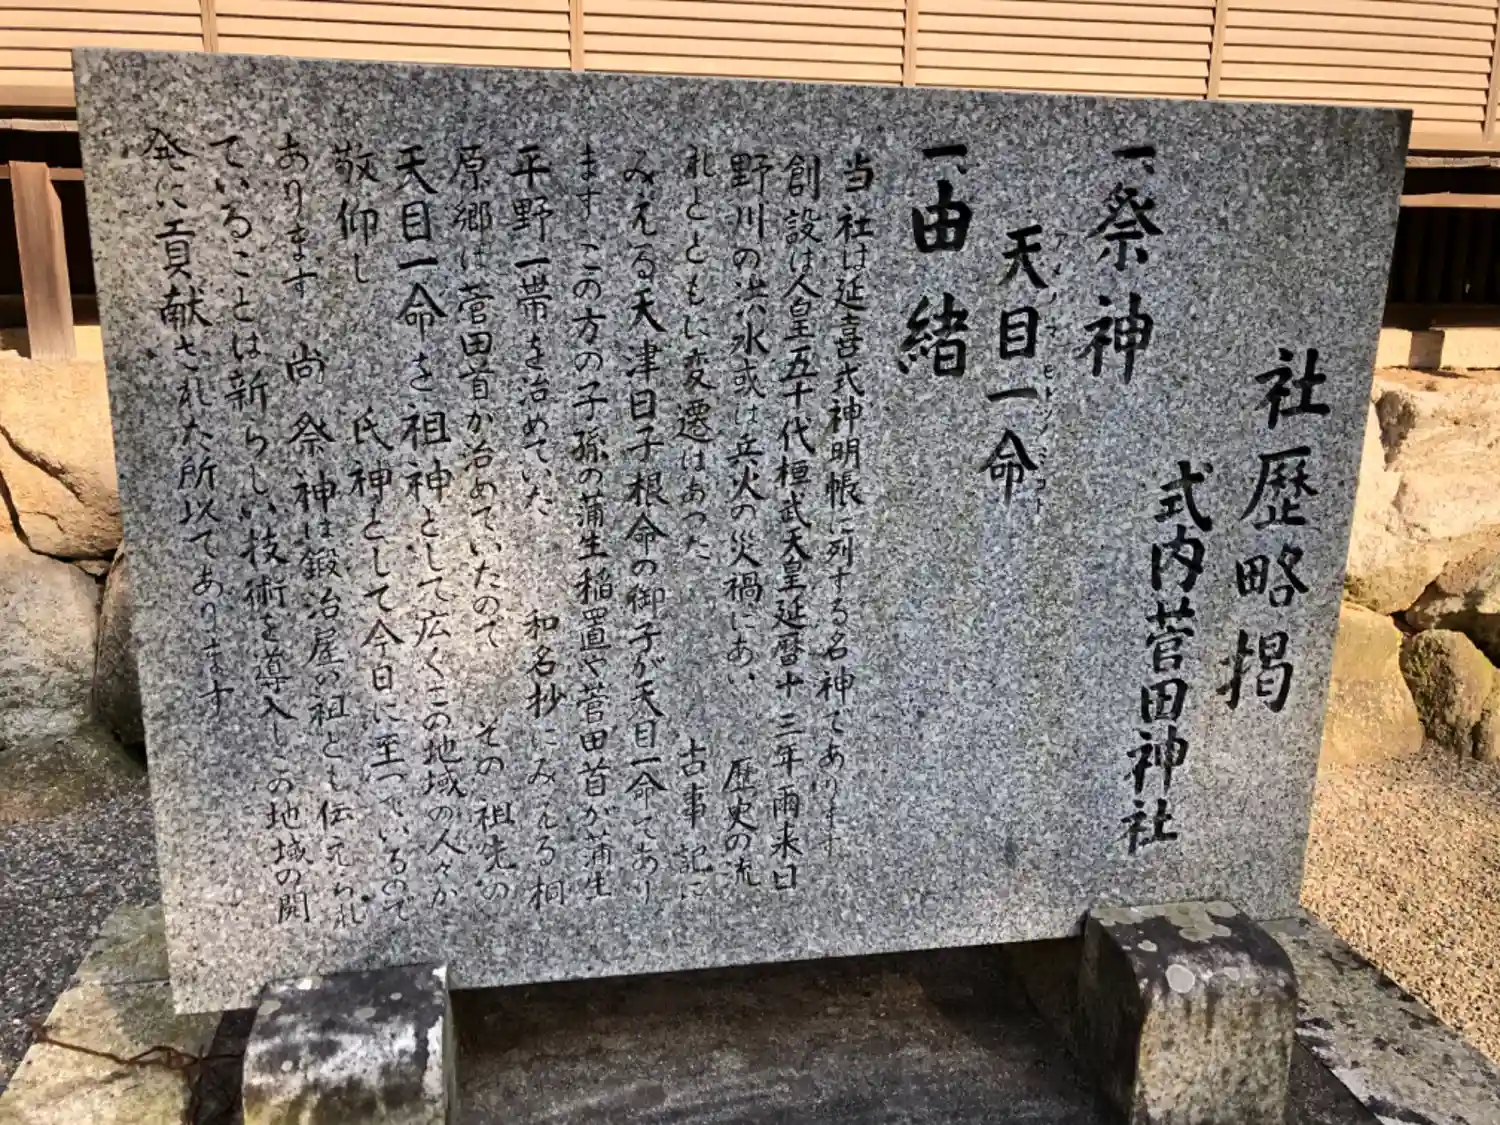 社歴略掲
式内菅田神社
一、祭神
天目一命
アメノマヒトツノミコト
一、由緒
当社は延喜式神明帳に列する名神であります
創設は人皇五十代桓武天皇延暦十三年雨来日
野川の洪水或は兵火の災禍にあい 歴史の流
れとともに変遷はあった 古事記に
みえる天津日子根命の御子が天目一命であり
ます この方の子孫の蒲生稲置や菅田首が蒲生
平野一帯を治めていた 和名抄にみえる桐
原郷は菅田首が治めていたので その祖先の
天目一命を祖神として広くこの地域の人々か
敬仰し 氏神として今日に至っているので
あります 尚祭神は鍛冶屋の祖とも伝えられ
ていることは新らしい技術を導入しこの地域の開
発に貢献された所以であります